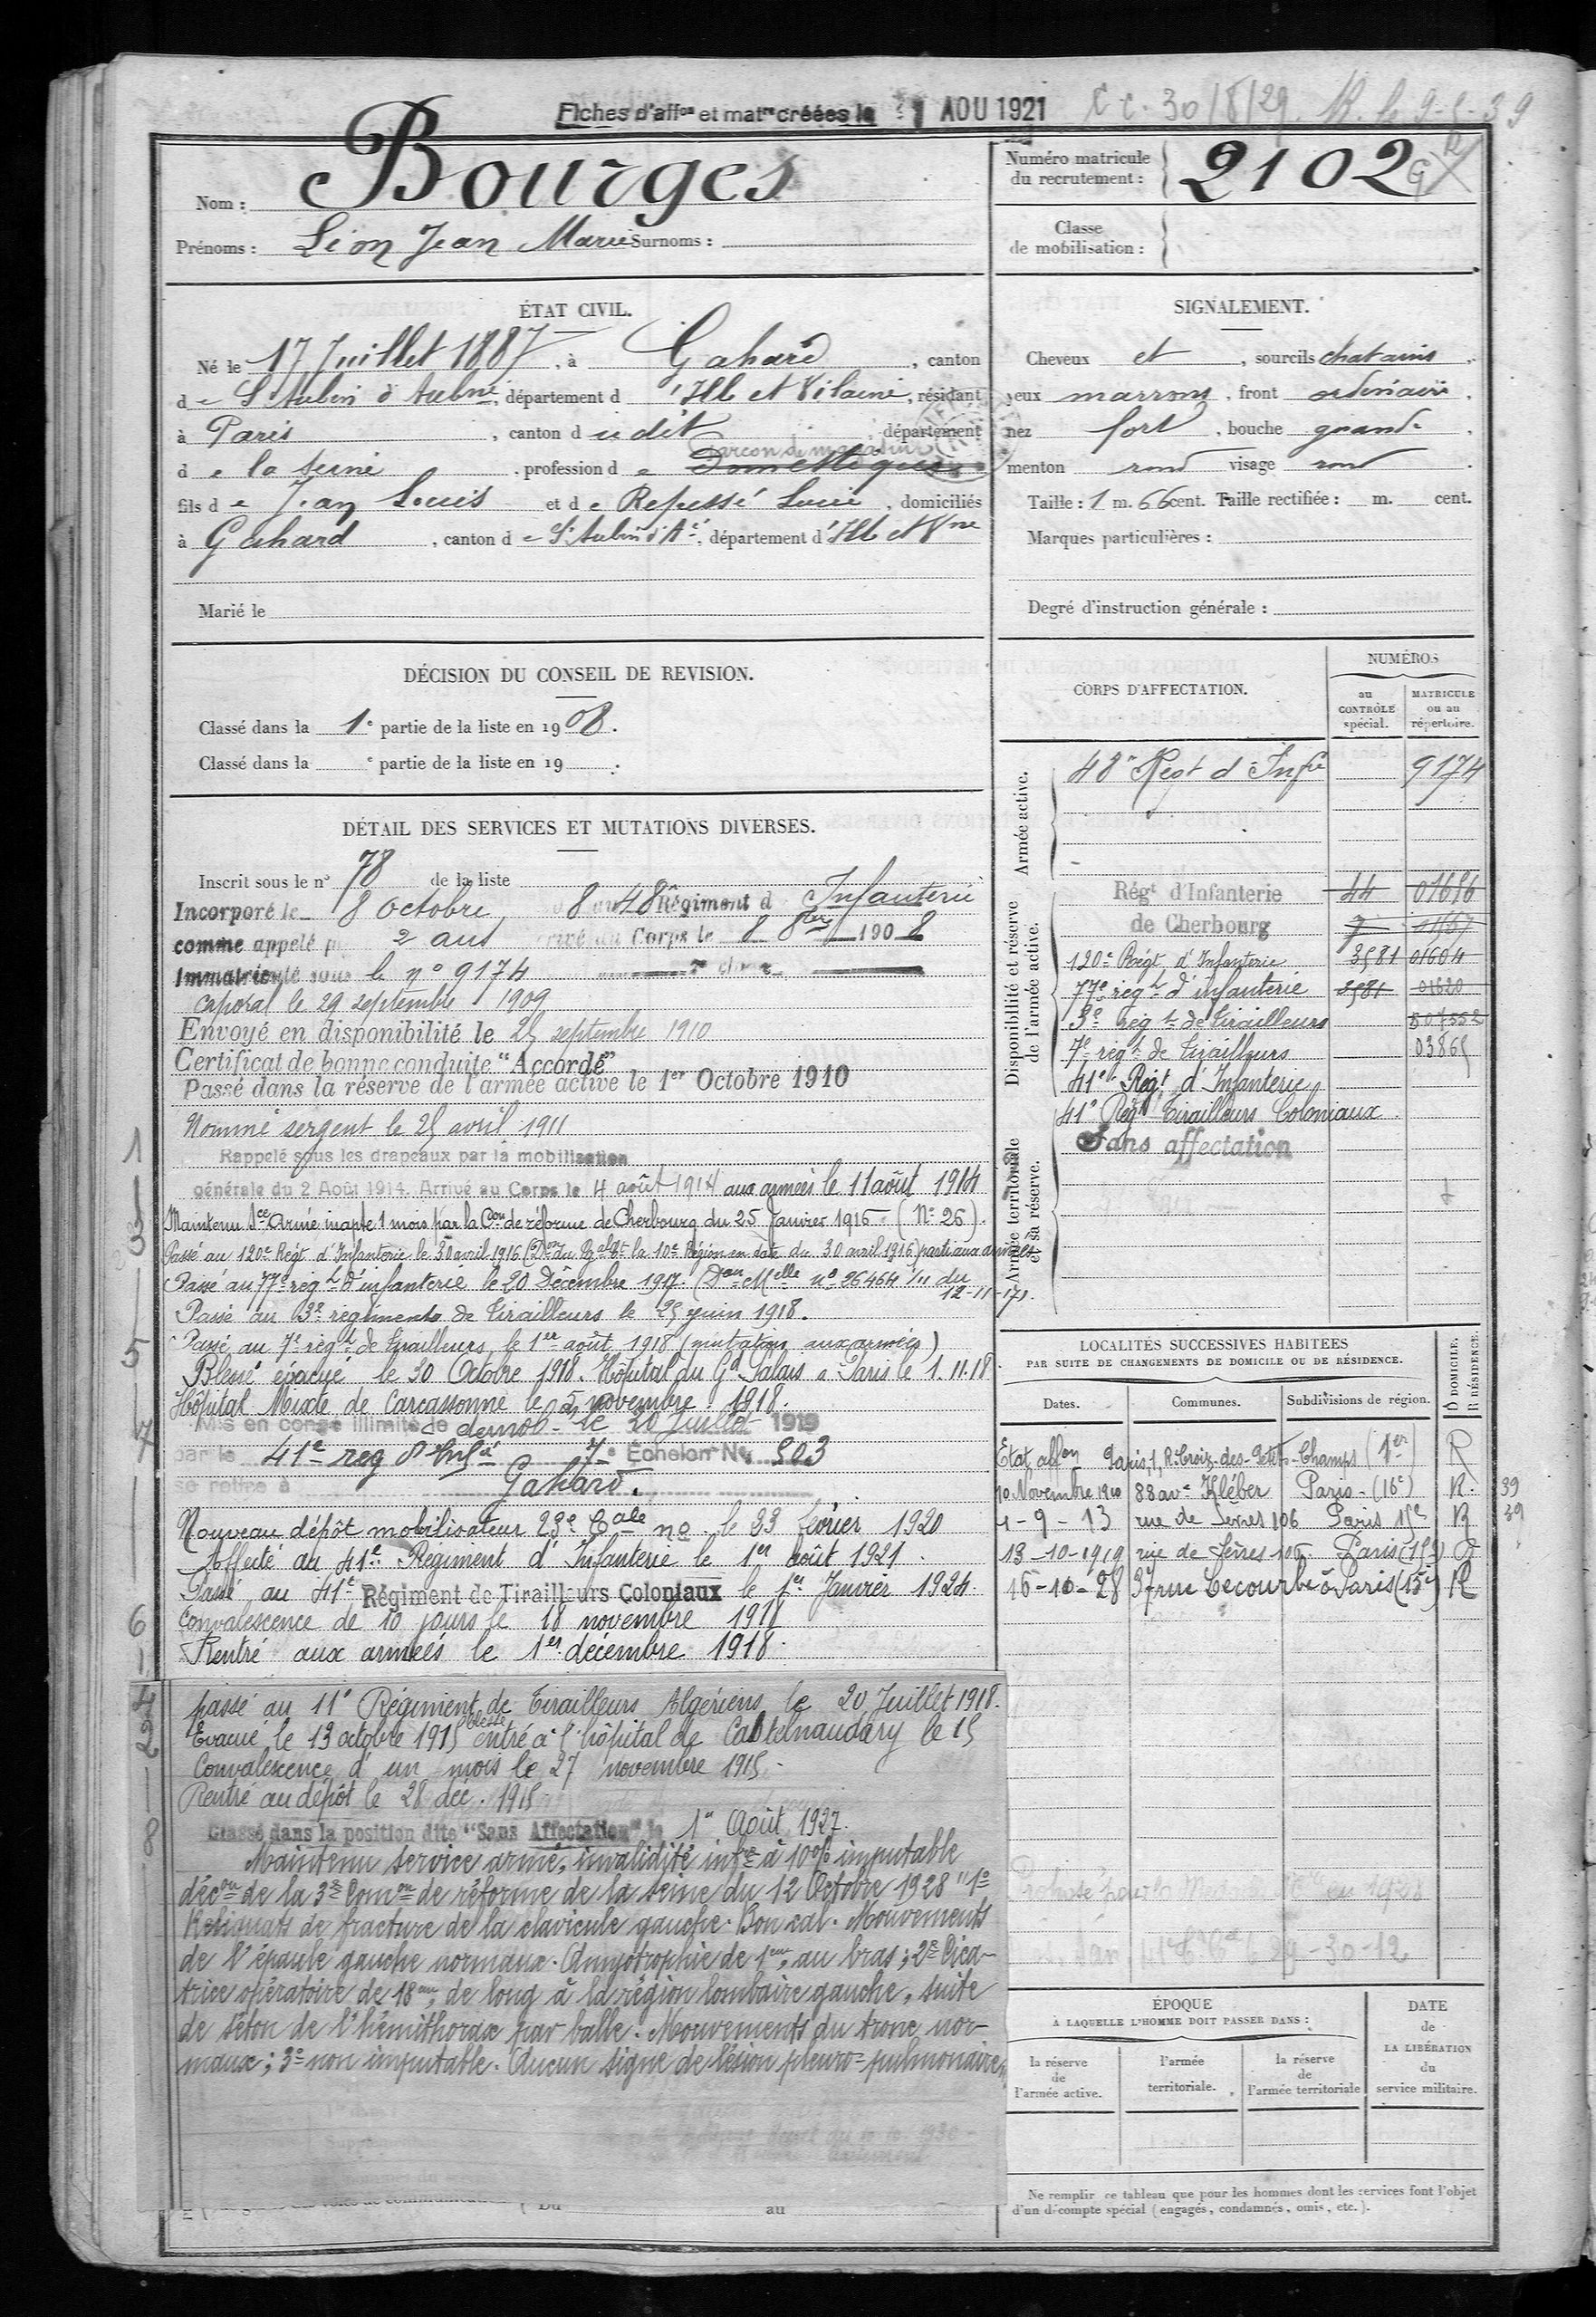 Fiches d'affon et matre créées le 1 AOU 1921 C C. 30/8/29. R. le 9-5-39
Nom : Bourges
Prénoms : Léon Jean Marie Surnoms :
Numéro matricule du recrutement : 2102
Classe de mobilisation :
ÉTAT CIVIL.
Né le 17 Juillet 1887, à Gahard, canton
de St Aubin d'Aubné, département d'Ille et Vilaine, résidant
à Paris, canton du dit, département
Garcon de magasin
de la Seine, profession de Domestique
fils de Jean Louis et de Repessé Lucie, domiciliés
à Gahard, canton de St Aubin d'Aé, département d'Ille et Vne
Marié le
SIGNALEMENT.
Cheveux et, sourcils chatains
yeux marrons, front ordinaire,
nez fort, bouche grande
menton rond visage rond.
Taille : 1 m. 66 cent. Taille rectifiée : m. cent.
Marques particulières :
Degré d'instruction générale :
DÉCISION DU CONSEIL DE REVISION.
Classé dans la 1e partie de la liste en 1908.
Classé dans la e partie de la liste en 19 .
DÉTAIL DES SERVICES ET MUTATIONS DIVERSES.
Inscrit sous le no 78 de la liste
Incorporé le 8 Octobre 8 au 48 Régiment d'Infanterie
comme appelé p 2 ans arrivé au Corps le 8 8bre 1908
Immatriculé sous le no 9174
Caporal le 29 septembre 1909
Envoyé en disponibilité le 25 septembre 1910
Certificat de bonne conduite "Accordé"
Passé dans la réserve de l'armée active le 1er Octobre 1910
Nommé sergent le 25 avril 1911
Rappelé sous les drapeaux par la mobilisation
générale du 2 Août 1914. Arrivé au Corps le 4 août 1914 aux armées le 11 août 1914
Maintenu Sce Armé inapte 1 mois par la Con de réforme de Cherbourg du 25 Janvier 1916 (No 26).
Passé au 120e Régt d'Infanterie le 30 avril 1916 (Don du Gal Ct la 10e Région en date du 30 avril 1916) parti aux armées
Passé au 77e regt d'infanterie le 20 Décembre 1917. (Don Melle no 26464 1/11 du 12-11-17).
Passé au 3e regiments de Tirailleurs le 25 juin 1918.
Passé au 7e régt de Tirailleurs le 1er août 1918 (mutation aux armées)
Blessé évacué le 30 Octobre 1918. Hôpital du Gd Palais à Paris le 1.11.18
Hôpital Mixte de Carcassonne le 5 novembre 1918.
Mis en congé illimité de demob- le 20 Juillet 1919
par le 41e reg d'Infie 7e Échelon No 503
se retire à Gahard.
Nouveau dépôt mobilisateur 23e Cale no le 23 fevrier 1920
Affecté au 41e Régiment d'Infanterie le 1er août 1921.
Passé au 41e Régiment de Tirailleurs Coloniaux le 1er Janvier 1924.
Convalescence de 10 jours le 18 novembre 1918
Rentré aux armées le 1er décembre 1918.
passé au 11e Régiment de Tirailleurs Algériens le 20 Juillet 1918.
Evacué le 13 octobre 1915 blessé entré à l'hôpital de Castelnaudary le 15
Convalescence d'un mois le 27 novembre 1915.
Rentré au dépôt le 28 déc. 1915
Classé dans la position dite "Sans Affectation" le 1er Août 1927.
Maintenu service armé, invalidité infre à 10% imputable
décon de la 3e Comon de réforme de la Seine du 12 Octobre 1928 "1o
Reliquats de fracture de la clavicule gauche. Bon cal. Mouvements
de l'épaule gauche normaux. Amyotrophie de 1cm au bras; 2o Cica-
trice opératoire de 18cm de long à la région lombaire gauche, suite
de séton de l'hémithorax par balle. Mouvements du tronc nor-
maux; 3o non imputable. Aucun signe de lésion pleuro-pulmonaire
Du au
1-3-5-7-6-294-8
CORPS D'AFFECTATION.
NUMÉROS
au CONTRÔLE spécial.
MATRICULE ou au répertoire.
Armée active.
48e Regt d'Infie 9174
Disponibilité et réserve de l'armée active.
Régt d'Infanterie 44 01696
de Cherbourg 7 01667
120e Régt d'Infanterie 3581 01604
77e regt d'infanterie 3581 01620
3e regt de Tirailleurs 507552
7e regt de tirailleurs 03865
41e Regt d'Infanterie
41e Regt Tirailleurs Coloniaux.
Sans affectation
Armée territoriale et sa réserve.
LOCALITÉS SUCCESSIVES HABITÉES
PAR SUITE DE CHANGEMENTS DE DOMICILE OU DE RÉSIDENCE.
Dates. Communes. Subdivisions de région. D DOMICILE. R RÉSIDENCE.
Etat allon Paris, 1, R. Croix-des-Petits-Champs (1er) R
10 Novembre 1910 88 ave Kléber Paris-(16e) R. 39
4-9-13 rue de Sèvres 106 Paris 15e R 39
13-10-1919 rue de Sèvres 106 Paris (15e) R
16-10-28 37 rue Lecourbe à Paris (15e) R
ÉPOQUE
À LAQUELLE L'HOMME DOIT PASSER DANS :
la réserve de l'armée active.
l'armée territoriale.
la réserve de l'armée territoriale
DATE de LA LIBÉRATION du service militaire.
Ne remplir ce tableau que pour les hommes dont les services font l'objet
d'un décompte spécial (engagés, condamnés, omis, etc.).